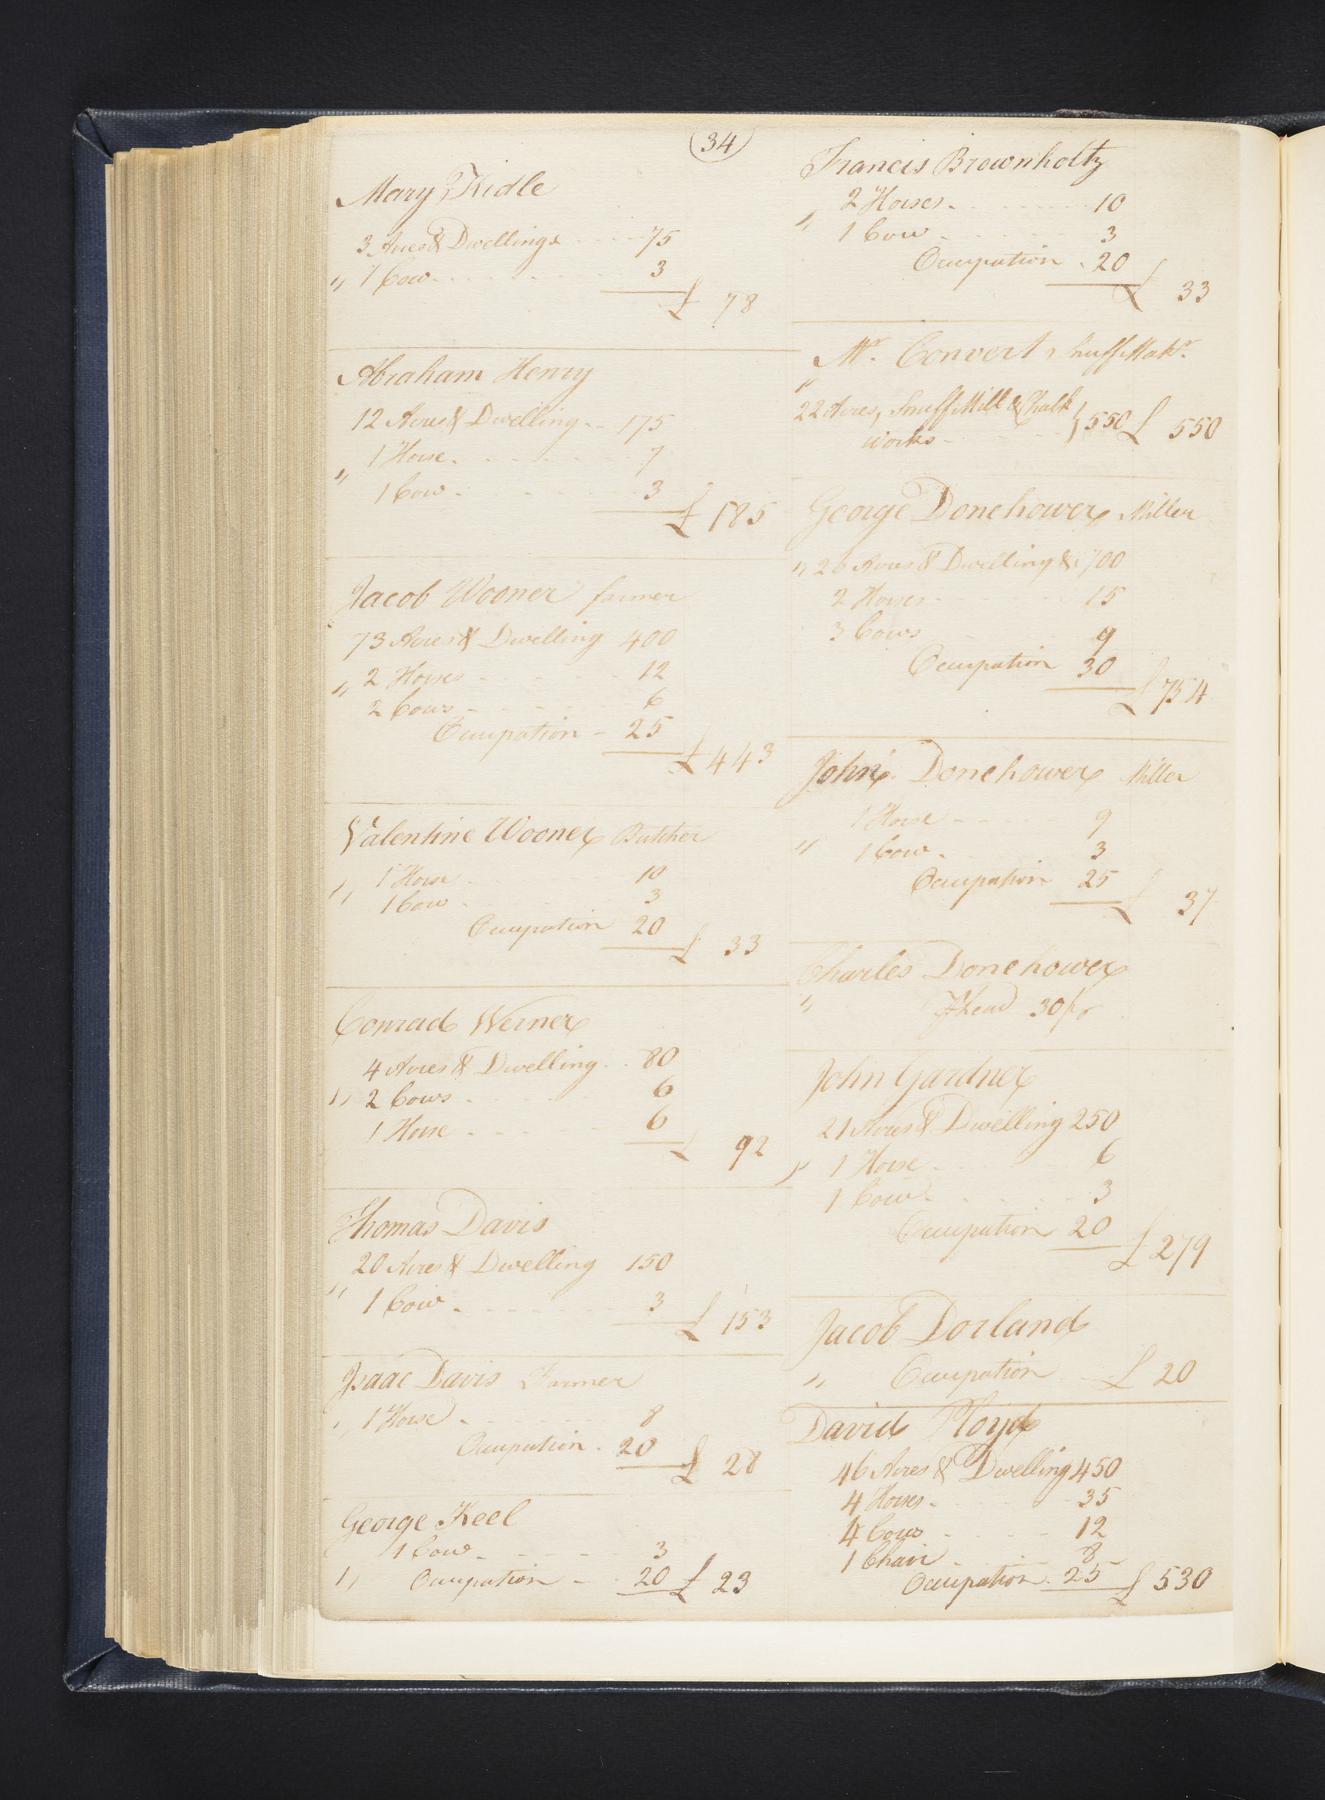 34
Mary Kidle
3 Acres & Dwellings 75
" 1 Cow 3
£ 78
Abraham Henry
12 Acres & Dwelling 175
1 Horse 7
"
1 Cow 3
£ 185
Jacob Wooner farmer
73 Acres & Dwelling 400
" 2 Horses 12
2 Cows 6
Occupation 25
£ 443
Valentine Wooner Butcher
1 Horse 10
" 1 Cow 3
Occupation 20
£ 33
Conrad Werner
4 Acres & Dwelling 80
" 2 Cows 6
1 Horse 6
£ 92
Thomas Davis
20 Acres & Dwelling 150
" 1 Cow 3
£ 153
Isaac Davis Farmer
" 1 Horse 8
Occupation 20
£ 28
George Keel
1 Cow 3
" Occupation 20 £ 23
Francis Brownholtz
2 Horses 10
" 1 Cow 3
Occupation 20
£ 33
Mr. Convert Snuff Makr.
"
22 Acres, Snuff Mill & Chalk
works } 550 £ 550
George Donehower Miller
" 26 Acres & Dwelling &c 700
2 Horses 15
3 Cows 9
Occupation 30
£ 754
John Donehower Miller
1 Horse 9
" 1 Cow 3
Occupation 25
£ 37
Charles Donehower
" Head 30/
John Gardner
21 Acres & Dwelling 250
" 1 Horse 6
1 Cow 3
Occupation 20
£ 279
Jacob Dorland
" Occupation £ 20
David Floyd
46 Acres & Dwelling 450
4 Horses 35
4 Cows 12
1 Chair 8
Occupation 25 £ 530